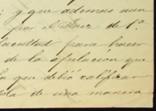 y que ademas
por el Juez de 1ª
facultad para hacer
de la apelacion que
que debió calificar
de una manera